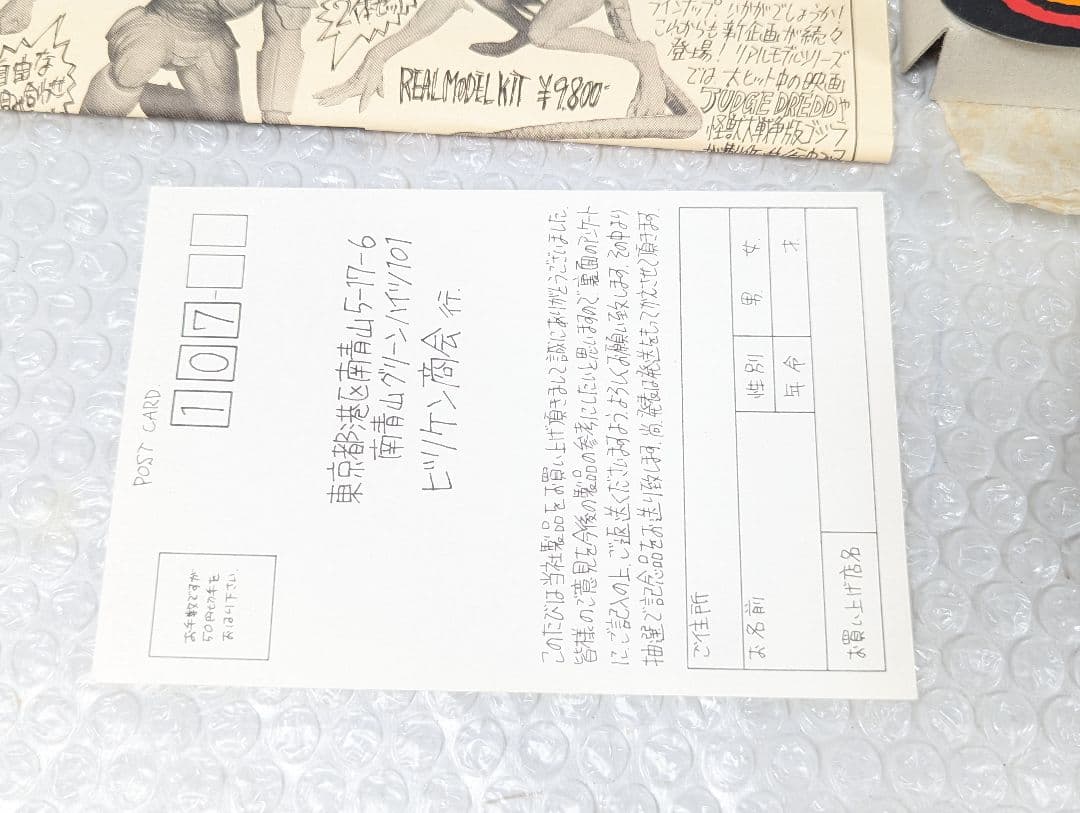 2体セット
自由な
REAL MODEL KIT ¥9,800-
ラインナップ いかがでしょうか!
これからも新企画が続々
登場! リアルモデルシリーズ
では 大ヒット中の映画
JUDGE DREDDや
怪獣大戦争版ゴジラ
POST CARD
107-
東京都港区南青山5-17-6
南青山グリーンハイツ101
ビリケン商会 行.
お手数ですが
50円切手を
おはり下さい.
このたびは当社製品をお買い上げ頂きまして誠にありがとうございました.
皆様のご意見を今後の製品の参考にしたいと思いますので裏面のアンケート
にご記入の上、ご返送くださいますようよろしくお願い致します. その中より
抽選で記念品をお送り致します. 尚、発表は発送をもってかえさせて頂きます.
ご住所
お名前
性別 男 女.
年令 才.
お買い上げ店名